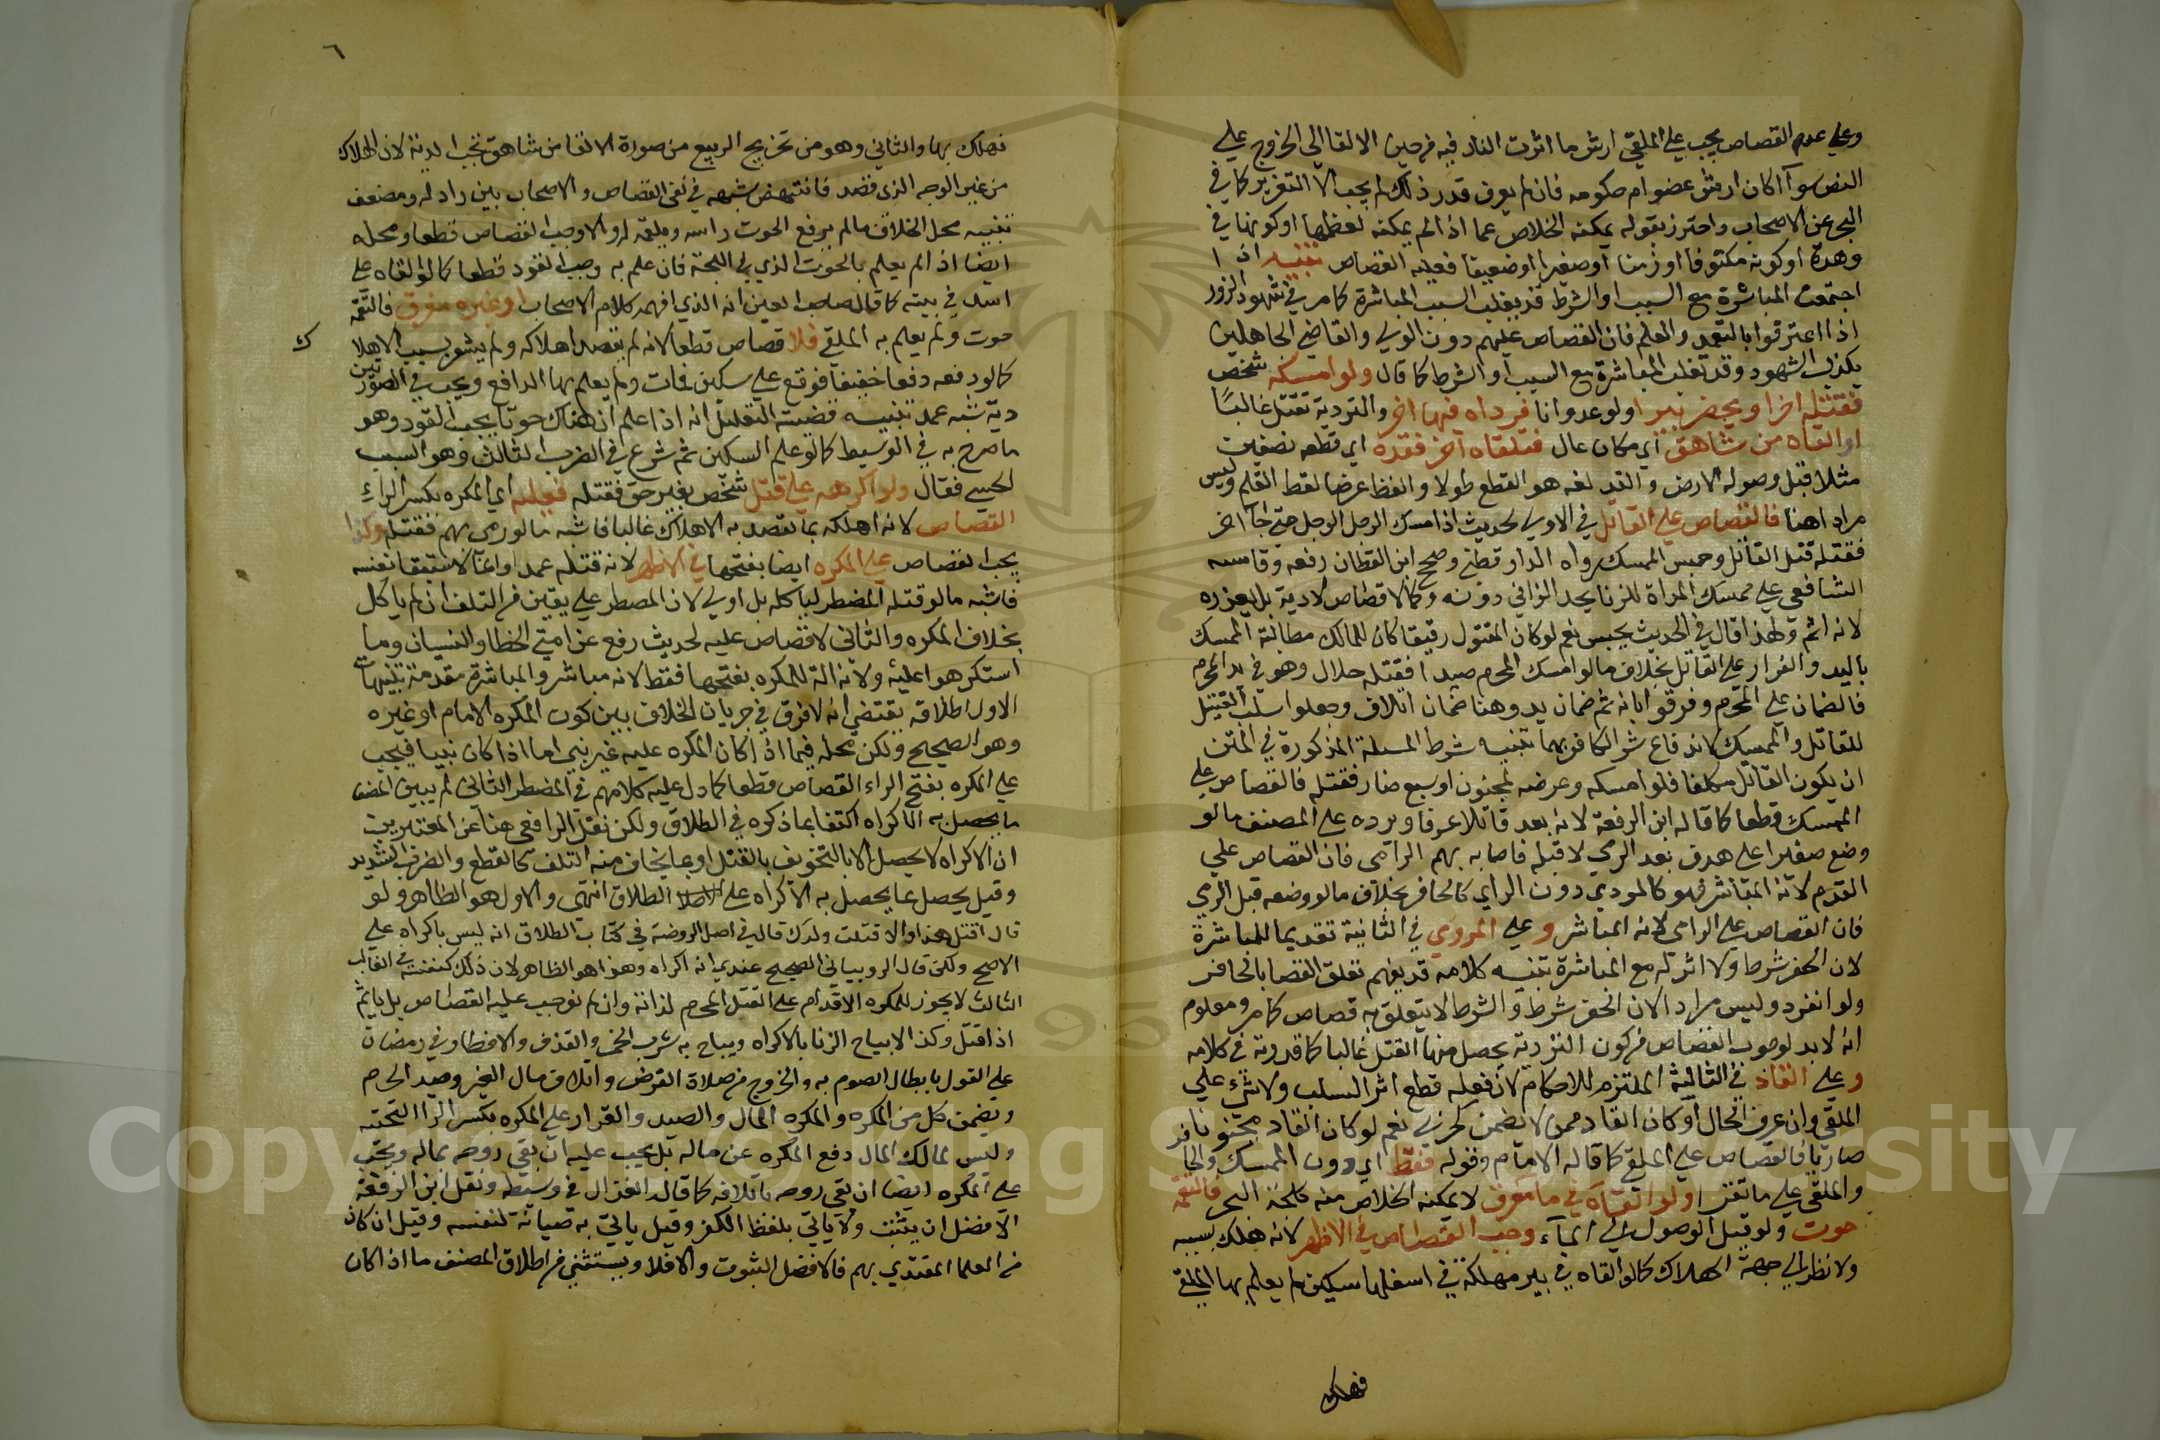 وعلي عدم القصاص يجب علي الملقي ارش ما اثرت النار فيه من حين الالقا الي الخروج علي
النص سوآ اكان ارش عضو ام حكومه فان لم يعرف قدر ذلك لم يجب الا التعزير كما في
البحر عن الاصحاب واحترز بقوله يمكنه الخلاص عما اذا لم يمكنه لعظمها او كونها في
وهدة او كونه مكتوفا او زمنا او صغيرا او ضعيفا فعليه القصاص تنبيه اذا
اجتمعت المباشرة مع السبب او الشرط قد يغلب السبب المباشرة كما مر في شهود الزور
اذا اعترفوا بالتعمد والعلم فان القصاص عليهم دون الولي والقاضي الجاهلين
بكذب الشهود وقد تغلب المباشرة مع السبب او الشرط كما قال ولو امسكه شخص
فقتله اخر او يحفر بيرا ولو عدوانا فرداه فيها اخر والتردية تقتل غالبًا
او القاه من شاهق اي مكان عال فتلقاه آخر فقده اي قطعه نصفين
مثلا قبل وصوله الارض والقد لغه هو القطع طولا والقط عرضا لقط القلم وليس
مرادا هنا فالقصاص علي القاتل في الاولي لحديث اذا امسك الرجل الرجل حتي جآ اخر
فقتله قتل القاتل وحبس الممسك رواه الدارقطني وصحح ابن القطان رفعه وقاسه
الشافعي علي ممسك المراة للزنا يحد الزاني دونه وكما لا قصاص لا دية بل يعزره
لانه اثم ولهذا قال في الحديث يحبس نعم لو كان المقتول رقيقا كان للمالك مطالبة الممسك
باليد والقرار علي القاتل بخلاف ما لو امسك المحرم صيدا فقتله حلال وهو في يد المحرم
فالضمان علي المحرم وفرقوا بانه ثم ضمان يد وهنا ضمان اتلاف وجعلوا سلب القتيل
للقاتل والممسك لاندفاع شر الكافر بهما تنبيه شرط المسلة المذكورة في المتن
ان يكون القاتل مكلفا فلو امسكه وعرضه لمجنون او سبع ضار فقتله فالقصاص علي
الممسك قطعا كما قاله ابن الرفعة لانه يعد قاتلا عرفا ويرده علي المصنف ما لو
وضع صغيرا علي هدف بعد الرمي لا قبله فاصابه بهم الرامي فان القصاص علي
المقدم لانه المباشر فهو كالمودي دون الرامي كالحافر بخلاف ما لو وضعه قبل الرمي
فان القصاص علي الرامي لانه المباشر و علي المردي في الثانية تقديما للمباشرة
لان الحفر شرط ولا اثر له مع المباشرة تنبيه كلامه قد يفهم تعلق القصاص بالحافر
ولو انفرد وليس مراد الان الحفر شرط والشرط لا يتعلق به قصاص كما مر ومعلوم
انه لابد لوجوب القصاص من كون التردية يحصل منها القتل غالبا كما قدرته في كلامه
و علي القاد في الثالثة الملتزم للاحكام لان فعله قطع اثر السبب ولا شيء علي
الملقي وان عرف الحال او كان القاد ممن لا يضمن كحربي نعم لو كان القاد مجنونا
ضاريا فالقصاص علي الملقي كما قاله الامام وقوله فقط اي دون الممسك والحافر
والملقي علي ما تقرر ولو القاه في ما مغرق لا يمكنه الخلاص منه كلجة البحر فالتقمه
حوت ولو قبل الوصول الي المآء وجب القصاص في الاظهر لانه هلك بسببه
ولا نظر الي جهة الهلاك كما لو القاه في بير مهلكة في اسفلها سكين لم يعلم بها الملقي
فهلك
٦
فهلك بها والثاني وهو من تخريج الربيع من صورة الالقا من شاهق تجب الدية لان الهلاك
من غير الوجه الذي قصد فانتهض شبهه في نفي القصاص والاصحاب بين راد له ومضعف
تنبيه محل الخلاف ما لم يرفع الحوت راسه ويلقمه له والا وجب القصاص قطعا ومحله
ايضا اذا لم يعلم بالحوت الذي في اللجة فان علم به وجب القود قطعا كما لو القاه علي
اسد في بيته كما قال صاحب المعين انه الذي افهمه كلام الاصحاب او غيره مغرق فالتقمه
حوت ولم يعلم به الملقي فلا قصاص قطعا لانه لم يقصد اهلاكه ولم يشعر بسبب الاهلا
ك
كما لو دفعه دفعا خفيفا فوقع علي سكين فمات ولم يعلم بها الدافع ويجب في الصورتين
دية شبه عمد تنبيه قضية التعليل انه اذا علم ان هناك حوتا يجب القود وهو
ما صرح به في الوسيط كما لو علم السكين ثم شرع في الضرب الثالث وهو السبب
الحسي فقال ولو اكرهه علي قتل شخص بغير حق فقتله فعليه اي المكره بكسر الراء
القصاص لانه اهلكه بما يقصد به الاهلاك غالبا فاشبه ما لو رمي بهم فقتله وكذا
يجب القصاص علي المكره ايضا بفتحها في الاظهر لانه قتله عمدا عدوانا لاستبقا نفسه
فاشبه ما لو قتله المضطر لياكله بل اولي لان المضطر علي يقين من التلف ان لم ياكل
بخلاف المكره والثاني لا قصاص عليه لحديث رفع عن امتي الخطا والنسيان وما
استكرهوا عليه ولانه الة للمكره بفتحها فقط لانه مباشر والمباشرة مقدمة تنبيهات
الاول اطلاقه يقتضي انه لا فرق في جريان الخلاف بين كون المكره الامام او غيره
وهو الصحيح ولكن محله فيما اذا كان المكره عليه غير نبي اما اذا كان نبيا فيجب
علي المكره بفتح الراء القصاص قطعا كما دل عليه كلامهم في المضطر الثاني لم يبين المصنف
ما يحصل به الاكراه اكتفا بما ذكره في الطلاق ولكن نقل الرافعي هنا عن المعتبرين
ان الاكراه لا يحصل الا بالتخويف بالقتل او بما يخاف منه التلف كالقطع والضرب الشديد
وقيل يحصل بما يحصل به الاكراه علي الطلاق انتهي والاول هو الظاهر ولو
قال اقتل هذا والا قتلت ولدك قال في اصل الروضة في كتاب الطلاق انه ليس باكراه علي
الاصح ولكن قال الروياني الصحيح عندي انه اكراه وهذا هو الظاهر لان ذلك كنفسه في الغالب
الثالث لا يجوز للمكره الاقدام علي القتل المحرم لذاته وان لم نوجب عليه القصاص بل ياثم
اذا قتل وكذا لا يباح الزنا بالاكراه ويباح به شرب الخمر والقذف والافطار في رمضان
علي القول بابطال الصوم به والخروج من صلاة الفرض واتلاف مال الغير وصيد الحرم
ويضمن كل من المكره والمكره المال والصيد والقرار علي المكره بكسر الرا
وليس لمالك المال دفع المكره عن ماله بل يجب عليه ان يقي روحه بماله ويجب
علي المكره ايضا ان يقي روحه باتلافه كما قاله الغزالي في وسيطه ونقل ابن الرفعة
الافضل ان يثبت ولا ياتي بلفظ الكفر وقيل ياتي به صيانة لنفسه وقيل ان كان
من العلما المقتدي بهم فالافضل الثبوت والا فلا ويستثني من اطلاق المصنف ما اذا كان
Copyright © King Saud University